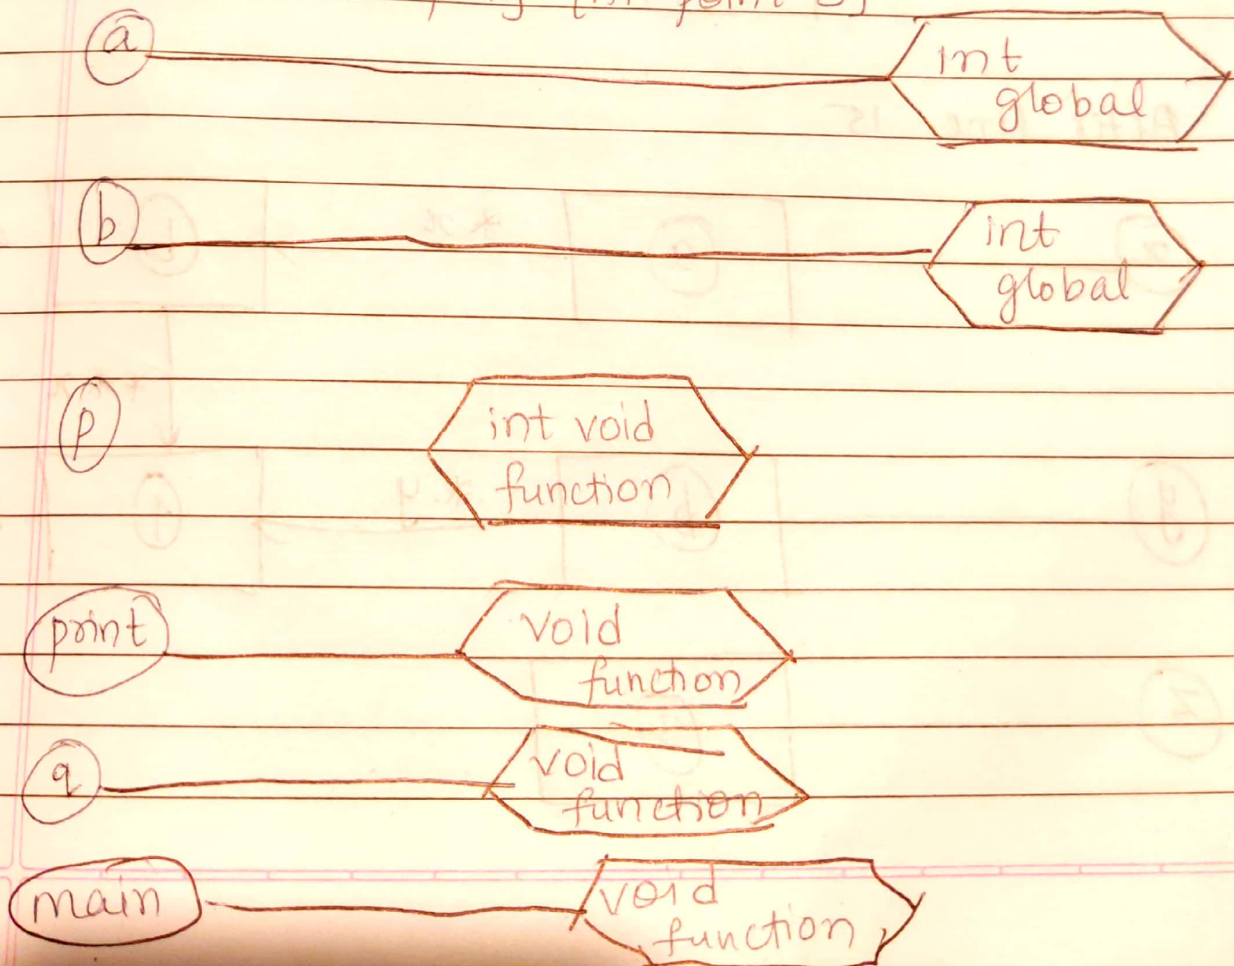 a
int
global
b
int
global
p
int void
function
print
void
function
q
void
function
main
void
function